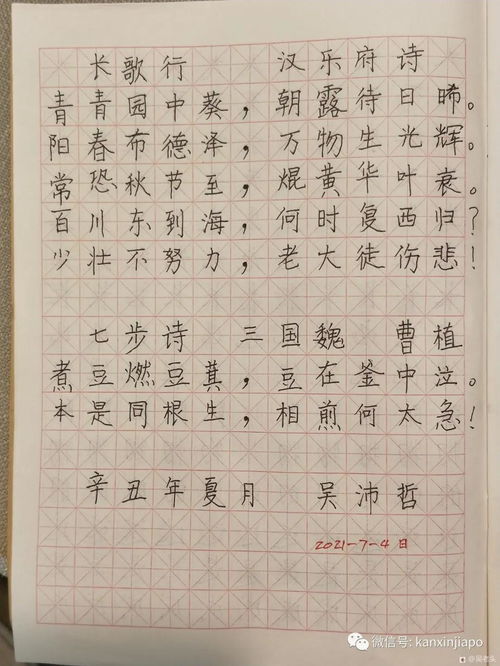 长歌行 汉乐府诗
青青园中葵，朝露待日晞。
阳春布德泽，万物生光辉。
常恐秋节至，焜黄华叶衰。
百川东到海，何时复西归？
少壮不努力，老大徒伤悲！
七步诗 三国魏 曹植
煮豆燃豆萁，豆在釜中泣。
本是同根生，相煎何太急！
辛丑年夏月 吴沛哲
2021-7-4日
微信号: kanxinjiapo